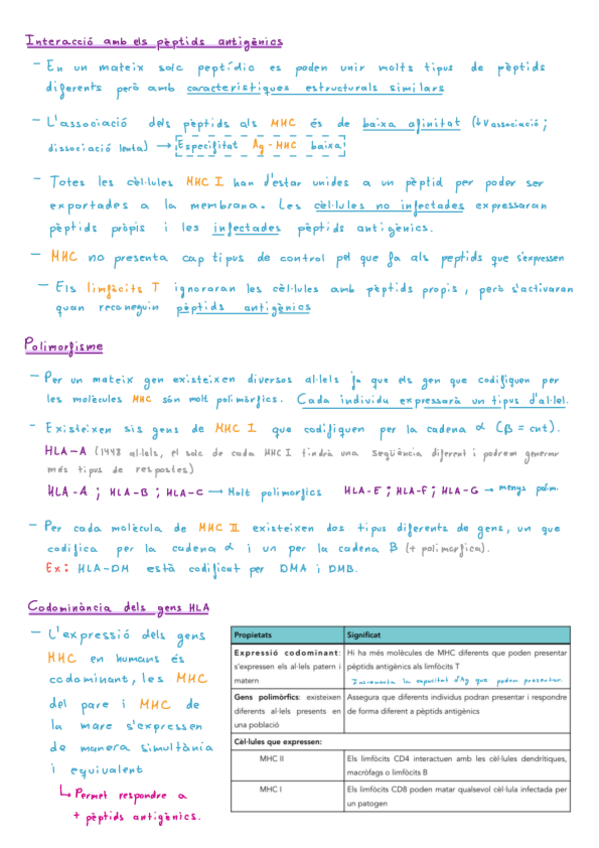 Interacció amb els pèptids antigènics
- En un mateix solc peptídic es poden unir molts tipus de pèptids
diferents però amb característiques estructurals similars
- L'associació dels pèptids als MHC és de baixa afinitat (↓V associació;
dissociació lenta) → Especifitat Ag-MHC baixa!
- Totes les cèl·lules MHC I han d'estar unides a un pèptid per poder ser
exportades a la membrana. Les cèl·lules no infectades expressaran
pèptids pròpis i les infectades pèptids antigènics.
- MHC no presenta cap tipus de control pel que fa als peptids que s'expressen
- Els limfòcits T ignoraran les cèl·lules amb pèptids propis, però s'activaran
quan reconeguin pèptids antigènics
Polimorfisme
- Per un mateix gen existeixen diversos al·lels ja que els gen que codifiquen per
les molècules MHC són molt polimòrfics. Cada individu expressarà un tipus d'al·lel.
- Existeixen sis gens de MHC I que codifiquen per la cadena α (β = cnt).
HLA-A (1448 al·lels, el solc de cada MHC I tindrà una seqüència diferent i podrem generar
més tipus de respostes)
HLA-A ; HLA-B ; HLA-C → Molt polimorfics HLA-E ; HLA-F ; HLA-G → menys polim.
- Per cada molècula de MHC II existeixen dos tipus diferents de gens, un que
codifica per la cadena α i un per la cadena B (+ polimorfica).
Ex: HLA-DM està codificat per DMA i DMB.
Codominància dels gens HLA
- L'expressió dels gens
MHC en humans és
codominant, les MHC
del pare i MHC de
la mare s'expressen
de manera simultània
i equivalent
↳ Permet respondre a
+ pèptids antigènics.
Propietats Significat
Expressió codominant: Hi ha més molècules de MHC diferents que poden presentar
s'expressen els al·lels patern i pèptids antigènics als limfòcits T
matern Incrementa la capacitat d'Ag que podem presentar.
Gens polimòrfics: existeixen Assegura que diferents individus podran presentar i respondre
diferents al·lels presents en de forma diferent a pèptids antigènics
una població
Cèl·lules que expressen:
MHC II Els limfòcits CD4 interactuen amb les cèl·lules dendrítiques,
macròfags o limfòcits B
MHC I Els limfòcits CD8 poden matar qualsevol cèl·lula infectada per
un patogen